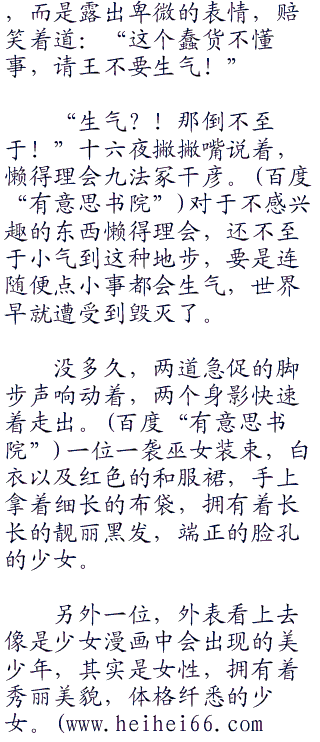 ，而是露出卑微的表情，赔
笑着道：“这个蠢货不懂
事，请王不要生气！”
“生气？！那倒不至
于！”十六夜撇撇嘴说着，
懒得理会九法冢干彦。(百度
“有意思书院”)对于不感兴
趣的东西懒得理会，还不至
于小气到这种地步，要是连
随便点小事都会生气，世界
早就遭受到毁灭了。
没多久，两道急促的脚
步声响动着，两个身影快速
着走出。(百度“有意思书
院”)一位一袭巫女装束，白
衣以及红色的和服裙，手上
拿着细长的布袋，拥有着长
长的靓丽黑发，端正的脸孔
的少女。
另外一位，外表看上去
像是少女漫画中会出现的美
少年，其实是女性，拥有着
秀丽美貌，体格纤悉的少
女。(www.heihei66.com